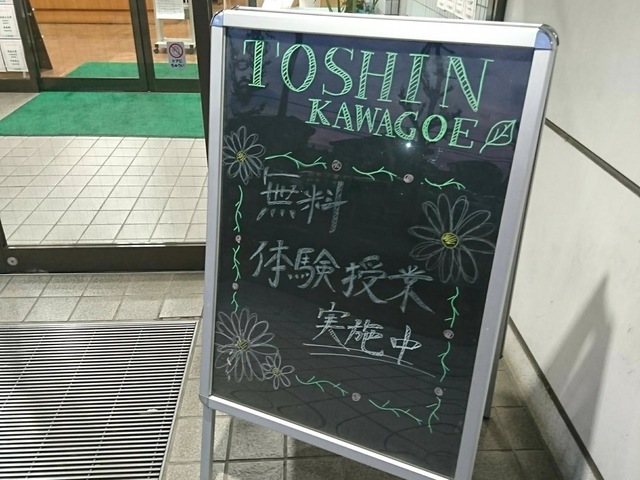 TOSHIN
KAWAGOE
無料
体験授業
実施中